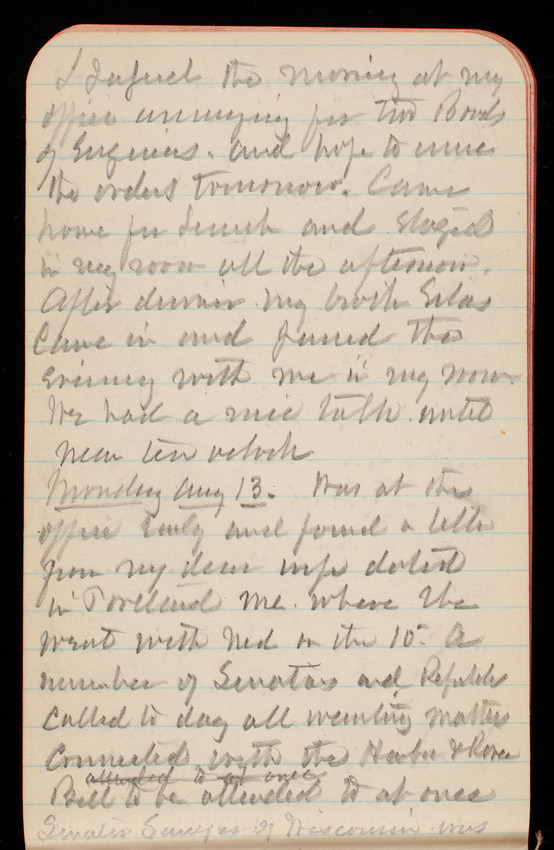 I passed the morning at my
office arranging for two Boards
of Engineers. and hope to issue
the orders tomorrow. Came
home for lunch and stayed
in my room all the afternoon.
After dinner my broth Silas
Came in and passed the
Evening with me in my room.
We had a nice talk until
near ten oclock
Monday Aug 13. Was at the
office Early and found a letter
from my dear wife dated
in Portland Me. where she
went with Ned on the 10. A
number of Senators and Repts
called to day all wanting matters
Connected with the Harbor & River
attended to at once
Bill to be attended to at once
Senator Sawyer of Wisconsin was